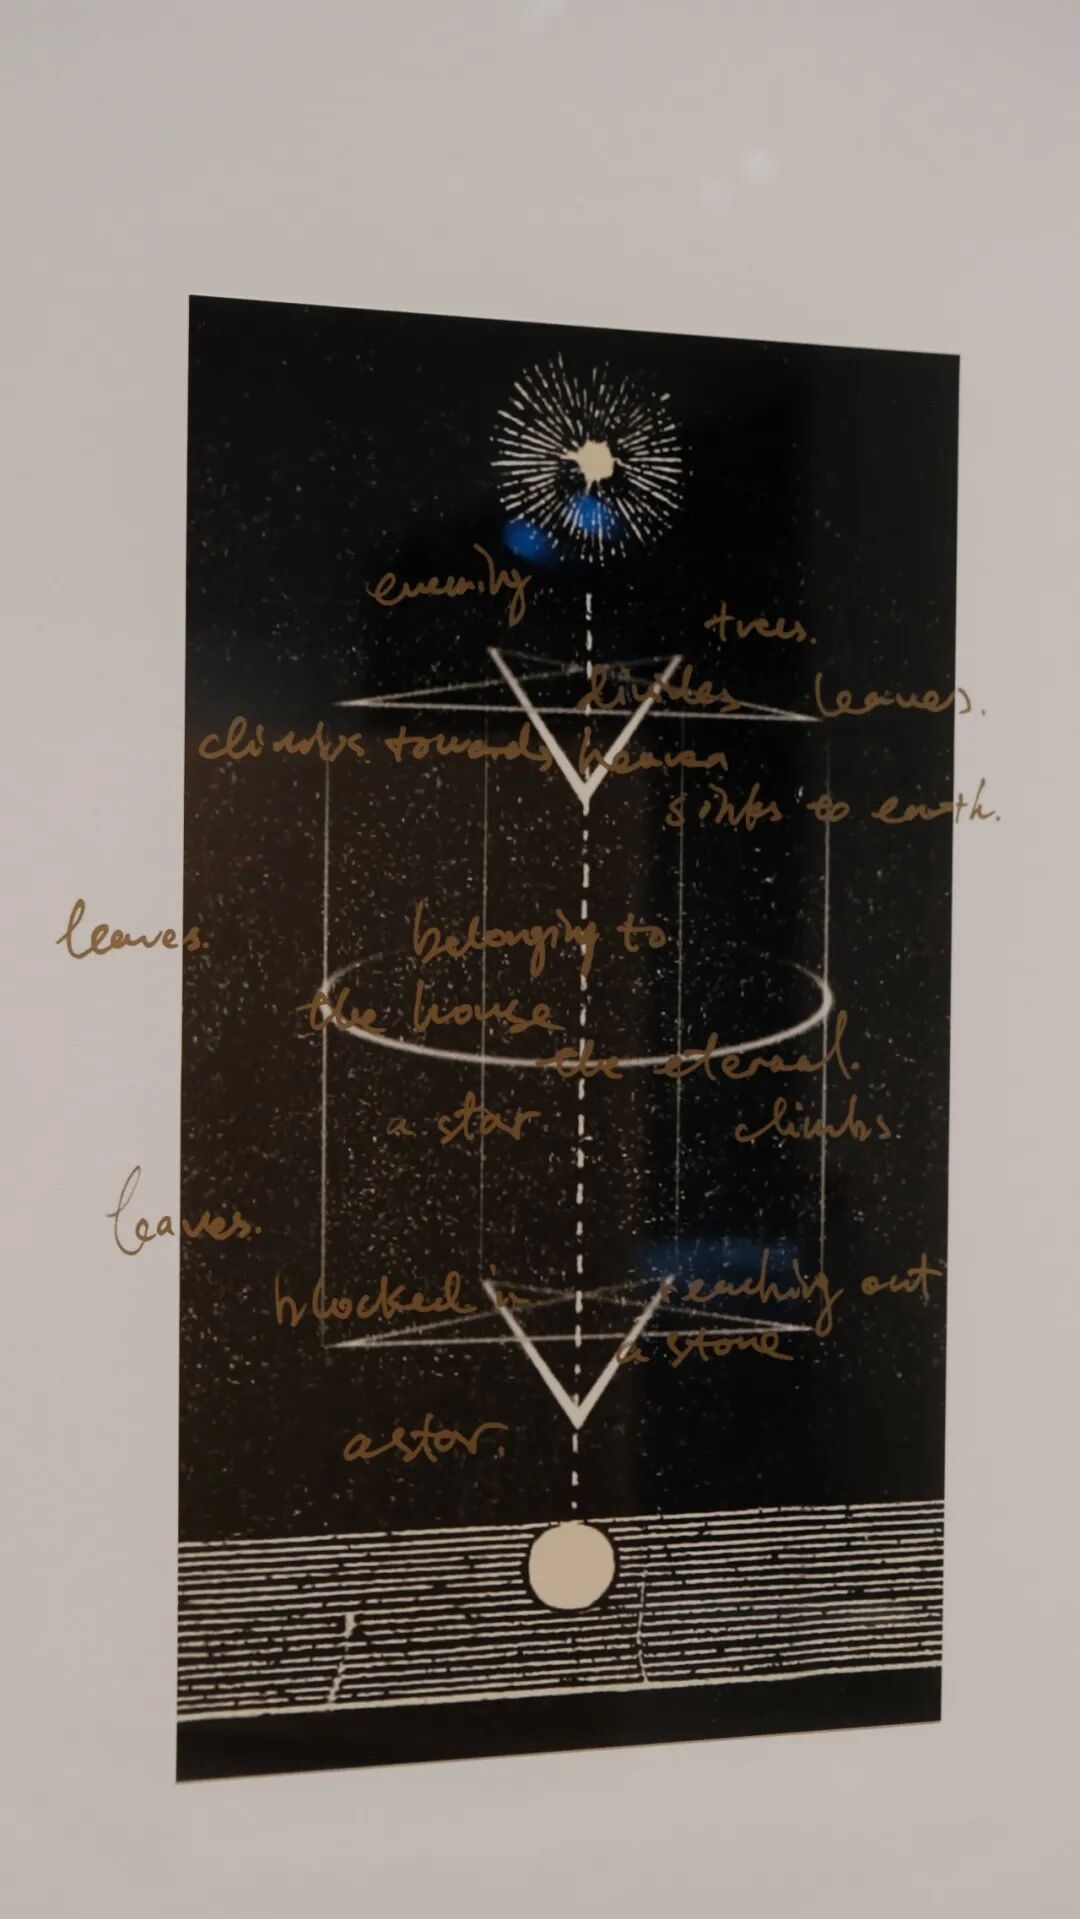 evening
trees.
divides leaves.
climbs towards heaven
sinks to earth.
leaves.
belonging to
the house
the eternal.
a star
climbs.
leaves.
blocked in reaching out
a stone
a star.